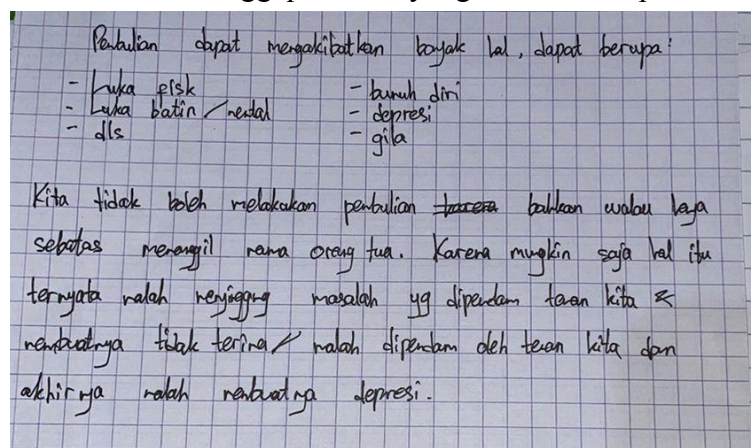 Penbulian dapat mengakibatkan bayak hal, dapat berupa:
- Luka fisk - bunuh diri
- Luka batin/mental - depresi
- dls - gila
Kita tidak boleh melakukan penbulian karena bahkan walau haya
sebatas menanggil nama orang tua. Karena mugkin saja hal itu
ternyata malah menyinggung masalah yg dipendam teman kita &
membuatnya tidak terima/ malah dipendam oleh teman kita dan
akhirnya malah membuatnya depresi.